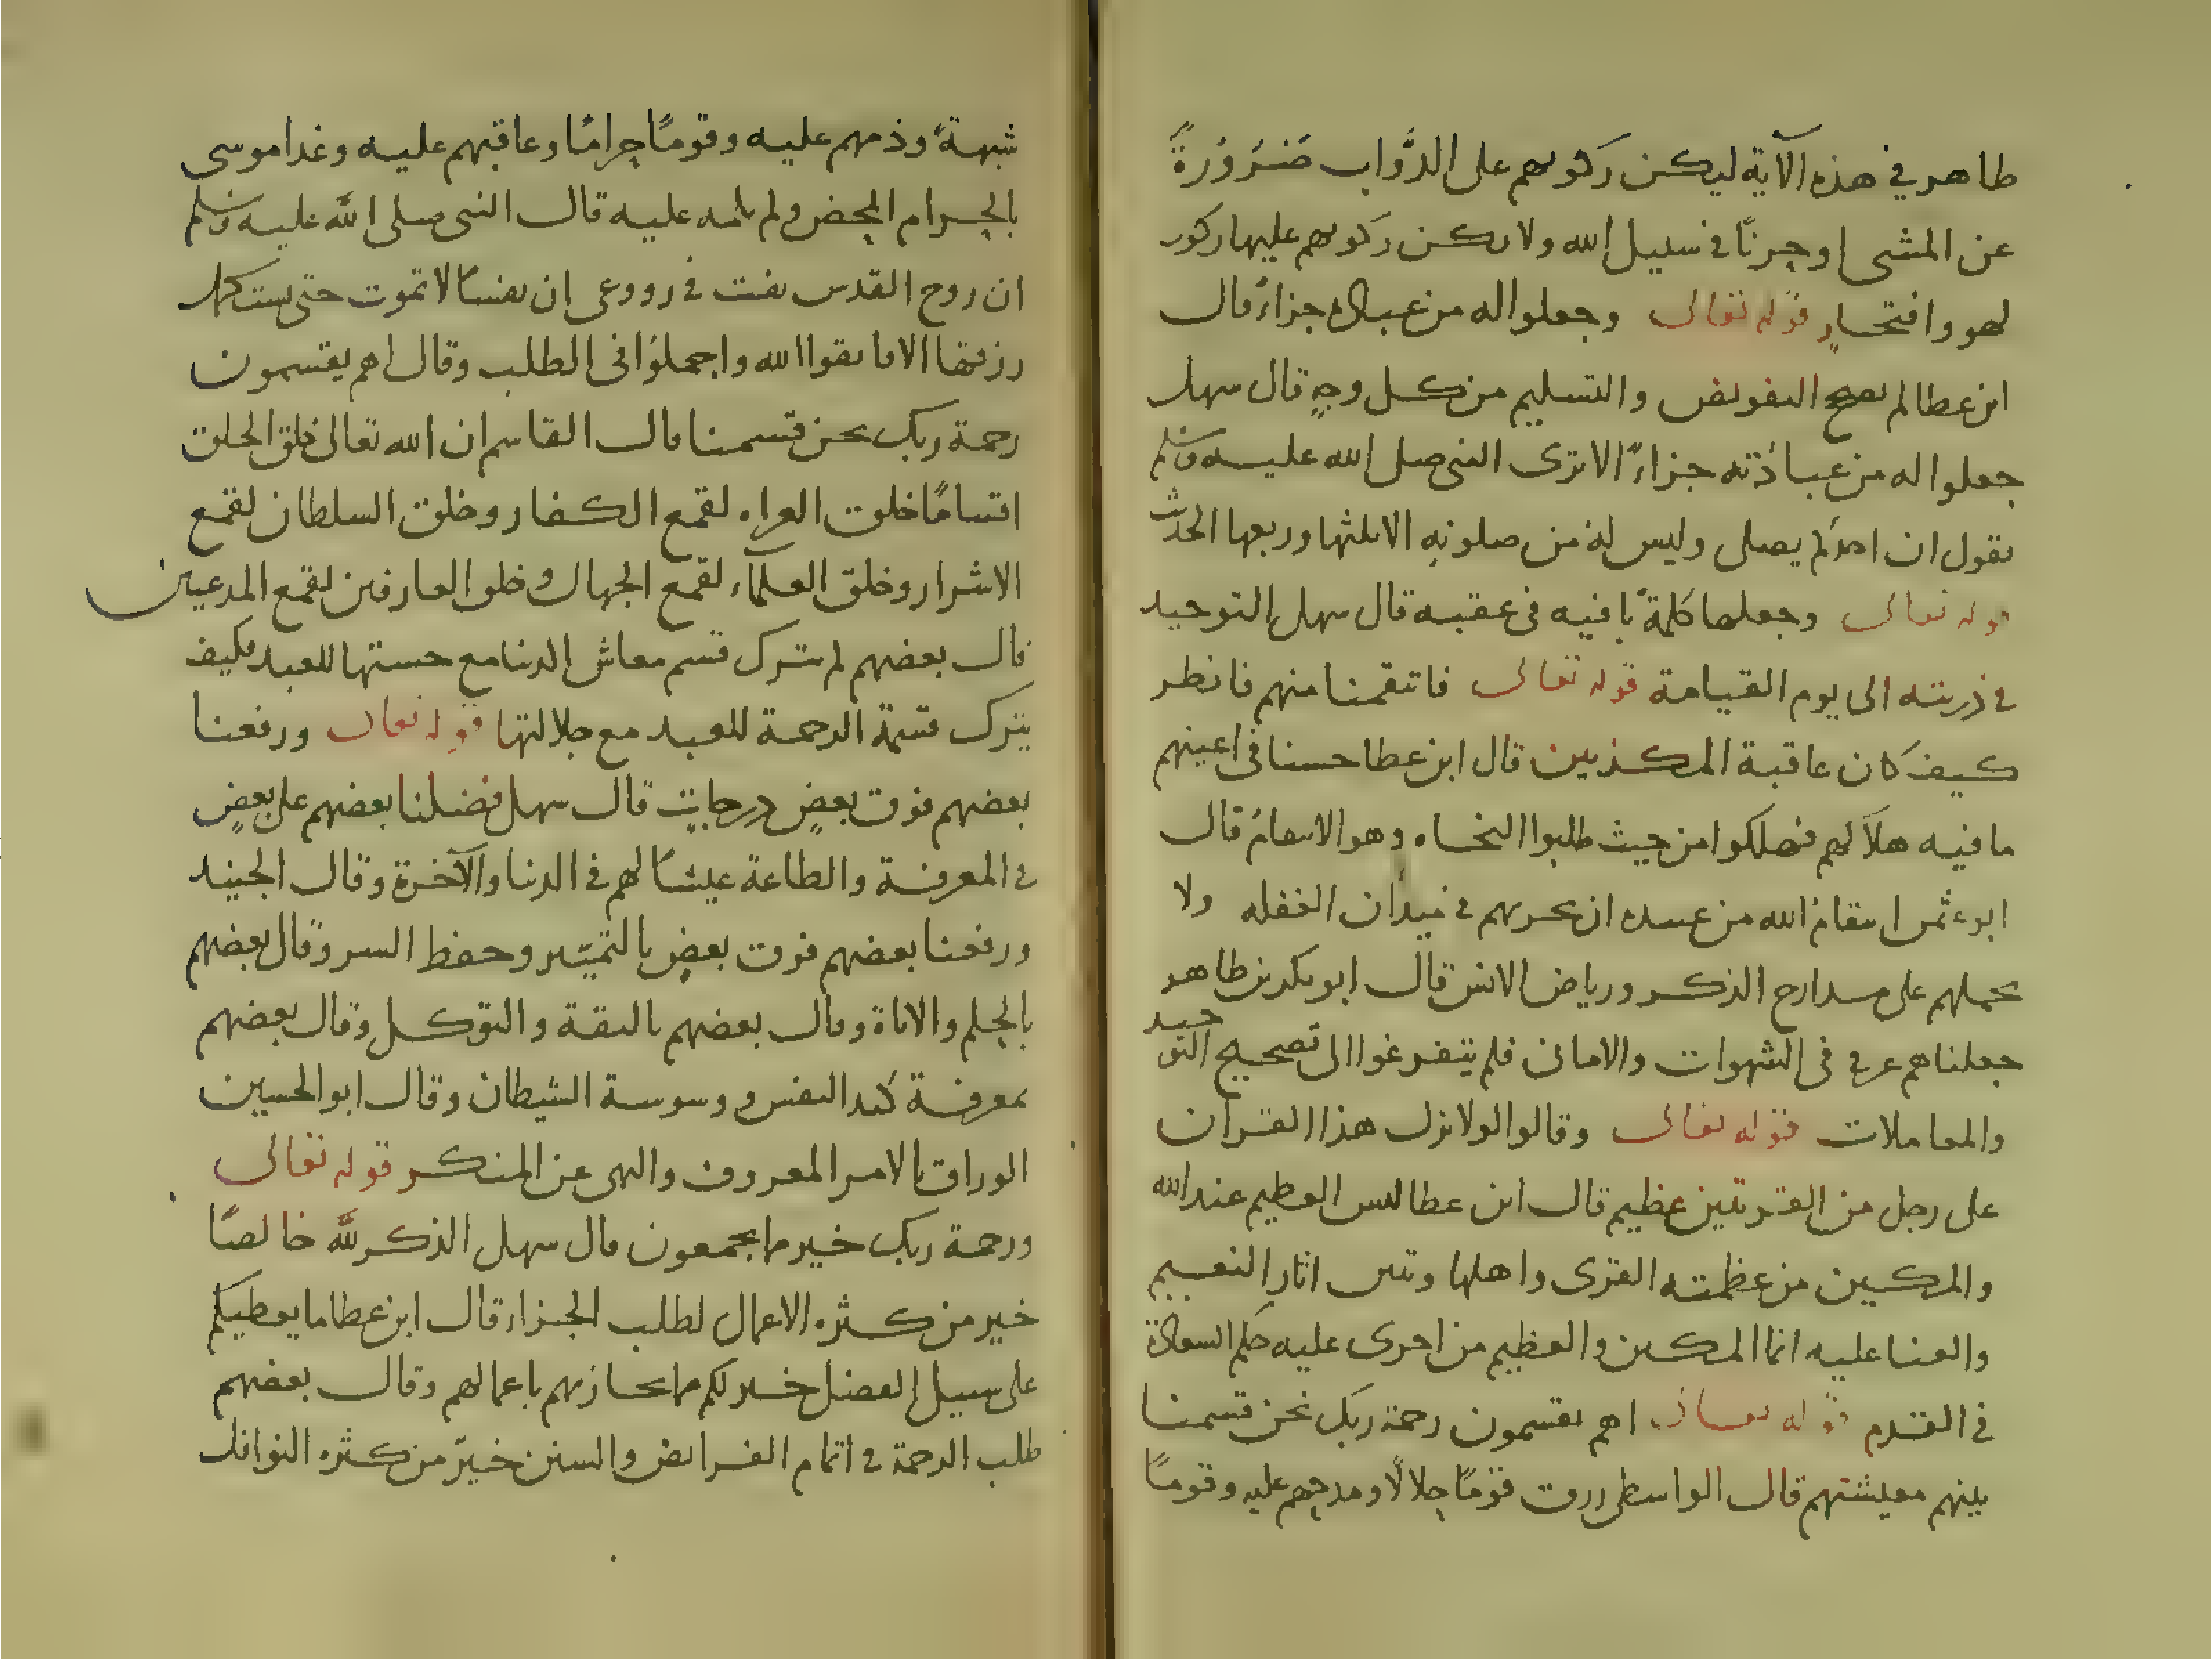 طاهر في هذه الآية ليكن ركوبهم على الدَّواب ضَرُورَةً
عن المشي او جريًا في سبيل الله ولا يكن ركوبهم عليها ركوب
لهو وافتخارٍ قوله تعالى وجعلوا له من عباده جزاءً قال
ابن عطا لم يصح التفويض والتسليم من كل وجهٍ قال سهل
جعلوا له من عبادته جزاءً الا ترى النبي صلى الله عليه وسلم
يقول ان احدكم يصلي وليس له من صلوته الا ثلثها وربعها الحدث
قوله تعالى وجعلها كلمةً باقيه في عقبه قال سهل التوحيد
في ذريته الى يوم القيامة قوله تعالى فانتقمنا منهم فانظر
كيف كان عاقبة المكذبين قال ابن عطا حسنا في اعينهم
ما فيه هلاكهم فهلكوا من حيث طلبوا النجاه وهو الانتقام قال
ابو عثمن انتقام الله من عبيده ان يجريهم في ميدان الغفله ولا
يحملهم على مدارج الذكر ورياض الانس قال ابو بكر بن طاهر
جعلناهم غرقى في الشهوات والاماني فلم يتفرغوا الى تصحيح التوحيد
والمعاملات قوله تعالى وقالوا لولا نزل هذا القران
على رجل من القريتين عظيم قال ابن عطا ليس العظيم عند الله
والمكين من عظمته القرى واهلها وتبين اثار النعيم
والغنا عليه انما المكين والعظيم من اجرى عليه حكم السعادة
في القدم قوله تعالى اهم يقسمون رحمة ربك نحن قسمنا
بينهم معيشتهم قال الواسطي رزق قومًا حلالًا ومدحهم عليه وقومًا
شبهةً وذمهم عليه وقومًا حرامًا وعاقبهم عليه وغدا موسى
بالحرام المحض ولم يلمه عليه قال النبي صلى الله عليه وسلم
ان روح القدس نفث في روعي ان نفسًا لا تموت حتى تستكمل
رزقها الا فاتقوا الله واجملوا في الطلب وقال اهم يقسمون
رحمة ربك نحن قسمنا قال القاسم ان الله تعالى خلق الخلق
اقسامًا خلق الغزاه لقمع الكفار وخلق السلطان لقمع
الاشرار وخلق العلماء لقمع الجهال وخلق العارفين لقمع المدعين
قال بعضهم لم يترك قسم معاش الدنيا مع خستها للعبد فكيف
يترك قسمة الرحمة للعبد مع جلالتها قوله تعالى ورفعنا
بعضهم فوق بعضٍ درجاتٍ قال سهل فضلنا بعضهم على بعضٍ
في المعرفة والطاعة عيشًا لهم في الدنيا والآخرة وقال الجنيد
ورفعنا بعضهم فوق بعضٍ بالتمييز وحفظ السر وقال بعضهم
بالحلم والاناة وقال بعضهم بالثقة والتوكل وقال بعضهم
بمعرفة كيد النفس ووسوسة الشيطان وقال ابو الحسين
الوراق بالامر المعروف والنهي عن المنكر قوله تعالى
ورحمة ربك خير مما يجمعون قال سهل الذكر لله خالصًا
خير من كثره الاعمال لطلب الجزاء قال ابن عطا ما يعطيكم
على سبيل الفضل خير لكم مما يجازيهم باعمالهم وقال بعضهم
طلب الرحمة في اتمام الفرايض والسنن خيرٌ من كثره النوافل